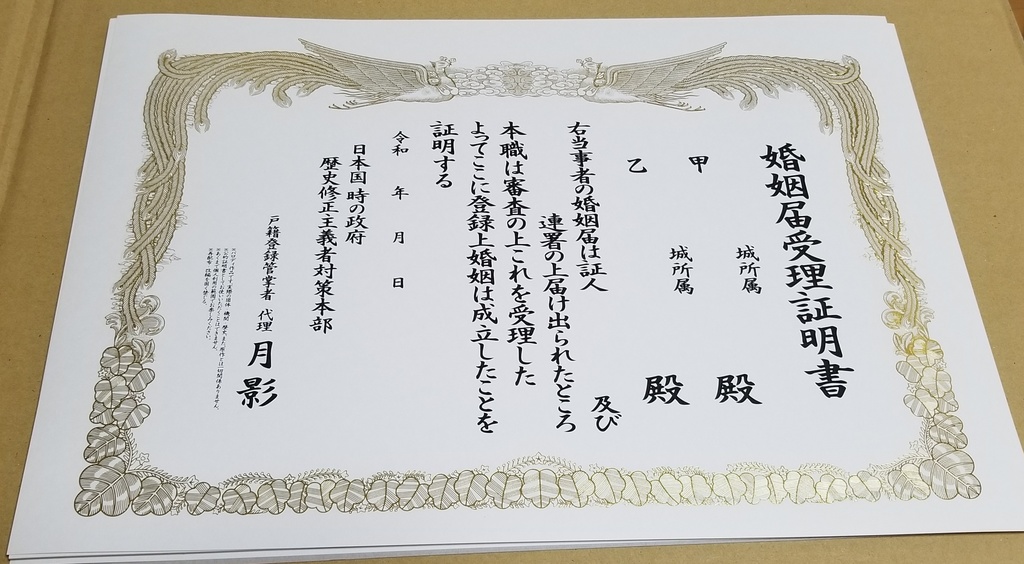 婚姻届受理証明書
甲 城所属 殿
乙 城所属 殿
右当事者の婚姻届は証人 及び
連署の上届け出られたところ
本職は審査の上これを受理した
よってここに登録上婚姻は成立したことを
証明する
令和 年 月 日
日本国 時の政府
歴史修正主義者対策本部
戸籍登録管掌者 代理 月影